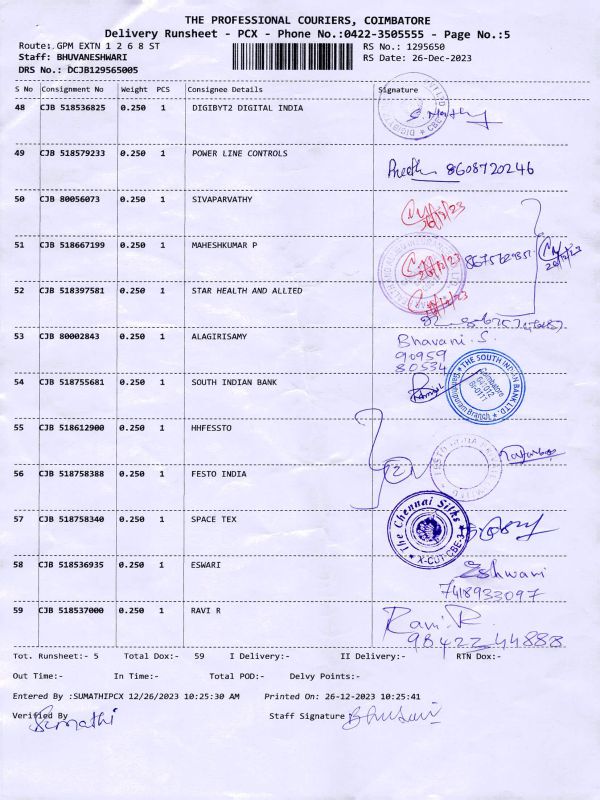 THE PROFESSIONAL COURIERS, COIMBATORE
Delivery Runsheet - PCX - Phone No.:0422-3505555 - Page No.:5
Route: GPM EXTN 1 2 6 8 ST RS No.: 1295650
Staff: BHUVANESHWARI RS Date: 26-Dec-2023
DRS No.: DCJB129565005
S No Consignment No Weight PCS Consignee Details Signature
48 CJB 518536825 0.250 1 DIGIBYT2 DIGITAL INDIA
49 CJB 518579233 0.250 1 POWER LINE CONTROLS Preethi 8608720246
50 CJB 80056073 0.250 1 SIVAPARVATHY 26/12/23
51 CJB 518667199 0.250 1 MAHESHKUMAR P 26/12/23 26/12/23
52 CJB 518397581 0.250 1 STAR HEALTH AND ALLIED
53 CJB 80002843 0.250 1 ALAGIRISAMY Bhavani. S.
90959
80534
54 CJB 518755681 0.250 1 SOUTH INDIAN BANK THE SOUTH INDIAN BANK LTD. Coimbatore
55 CJB 518612900 0.250 1 HHFESSTO
56 CJB 518758388 0.250 1 FESTO INDIA
57 CJB 518758340 0.250 1 SPACE TEX The Chennai Silks X-CUT-CBE-3
58 CJB 518536935 0.250 1 ESWARI Eshwari
7418933097
59 CJB 518537000 0.250 1 RAVI R Ravi.R.
98422 44888
Tot. Runsheet:- 5 Total Dox:- 59 I Delivery:- II Delivery:- RTN Dox:-
Out Time:- In Time:- Total POD:- Delvy Points:-
Entered By :SUMATHIPCX 12/26/2023 10:25:30 AM Printed On: 26-12-2023 10:25:41
Verified By Sumathi Staff Signature